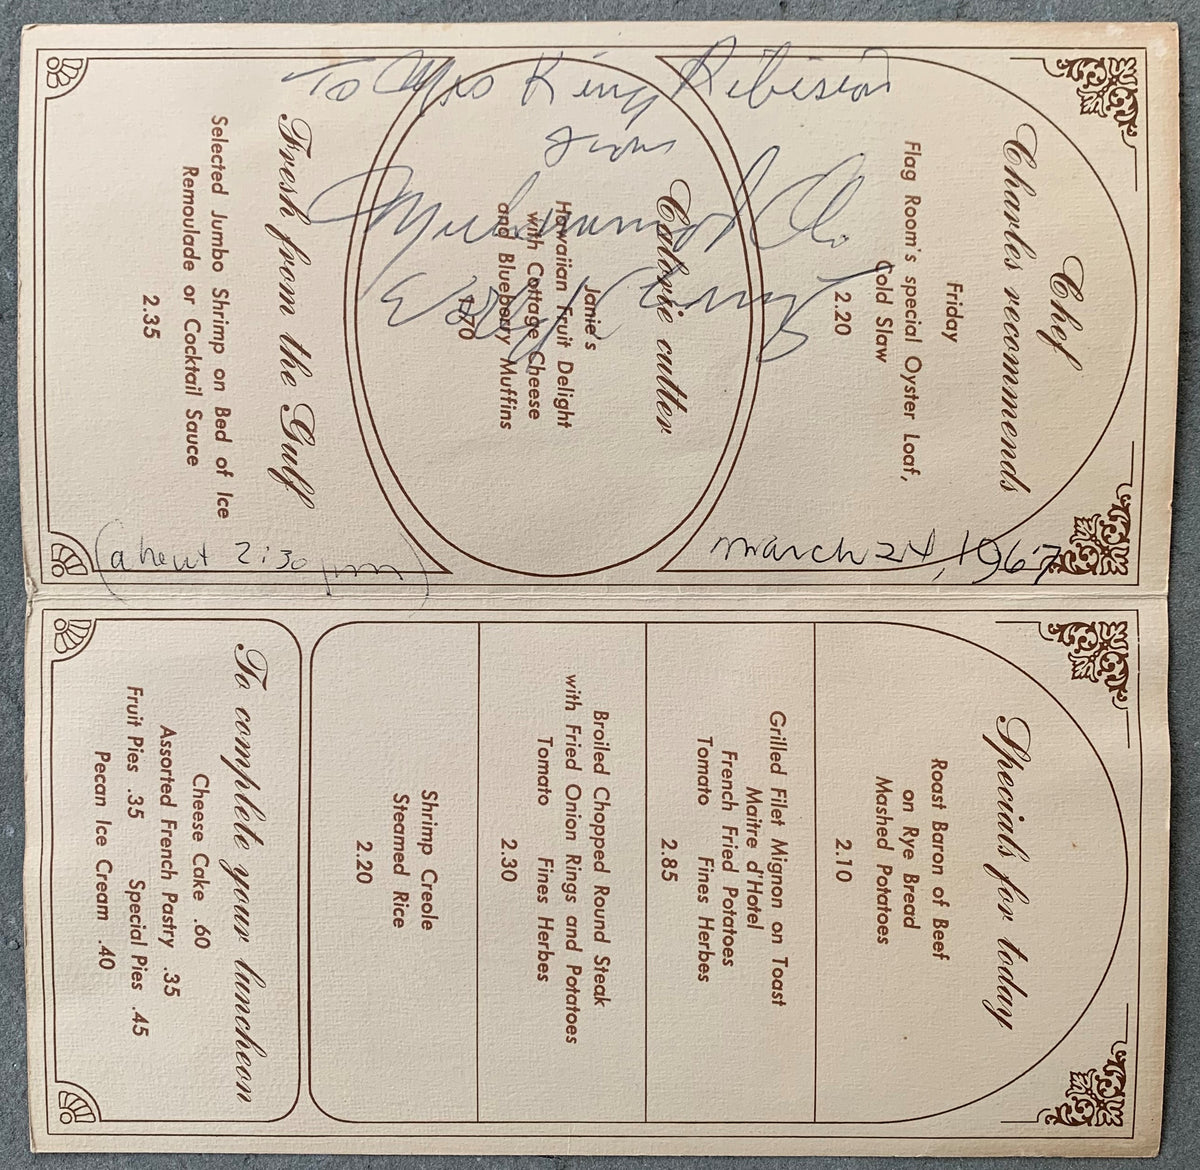 Chef
Charles recommends
Friday
Flag Room's special Oyster Loaf,
Cold Slaw
2.20
Calorie cutter
Janie's
Hawaiian Fruit Delight
with Cottage Cheese
and Blueberry Muffins
1.70
Fresh from the Gulf
Selected Jumbo Shrimp on Bed of Ice
Remoulade or Cocktail Sauce
2.35
To Mrs King
from
Muhammad Ali
march 24, 1967
(about 2:30 pm)
Specials for today
Roast Baron of Beef
on Rye Bread
Mashed Potatoes
2.10
Grilled Filet Mignon on Toast
Maitre d'Hotel
French Fried Potatoes
Tomato Fines Herbes
2.85
Broiled Chopped Round Steak
with Fried Onion Rings and Potatoes
Tomato Fines Herbes
2.30
Shrimp Creole
Steamed Rice
2.20
To complete your luncheon
Cheese Cake .60
Assorted French Pastry .35
Fruit Pies .35 Special Pies .45
Pecan Ice Cream .40